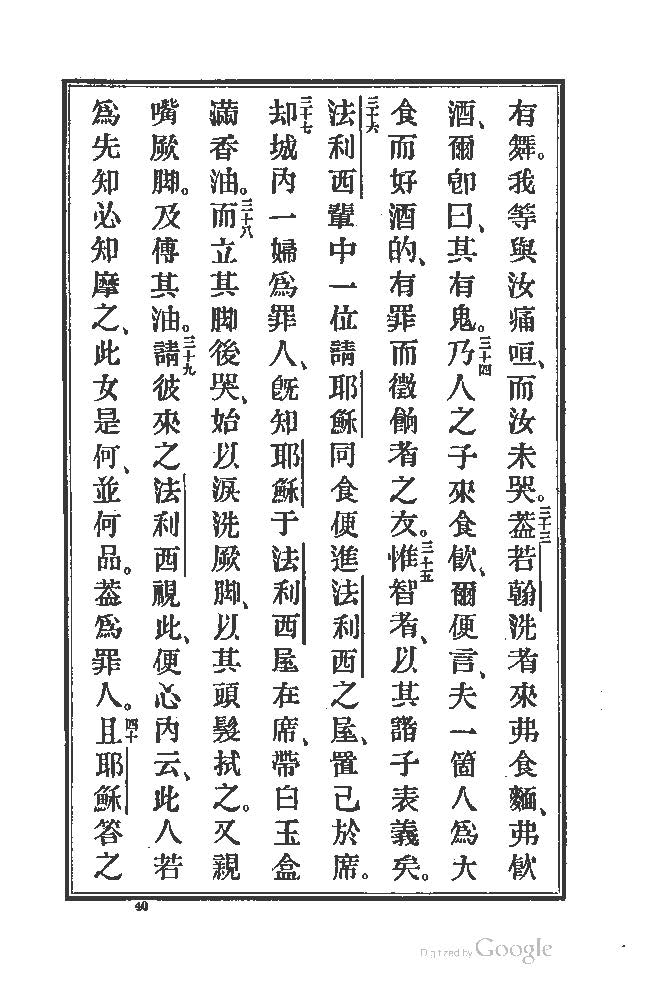 有舞。我等與汝痛咺、而汝未哭。三十三葢若翰洗者來弗食麵、弗飲
酒、爾卽曰、其有鬼。三十四乃人之子來食飲、爾便言、夫一箇人爲大
食而好酒的、有罪而徵餉者之友。三十五惟智者、以其諸子表義矣。
三十六法利西輩中一位請耶穌同食便進法利西之屋、置己於席。
三十七却城內一婦爲罪人、旣知耶穌于法利西屋在席、帶白玉盒
滿香油。三十八而立其脚後哭、始以淚洗厥脚、以其頭髮拭之。又親
嘴厥脚。及傅其油。三十九請彼來之法利西視此、便心內云、此人若
爲先知必知摩之、此女是何、並何品。葢爲罪人。四十且耶穌答之
40
Digitized by Google